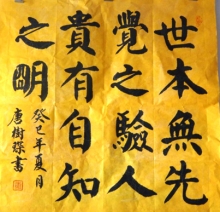 世本無先
覺之驗人
貴有自知
之明
癸巳年夏月
唐樹琛書